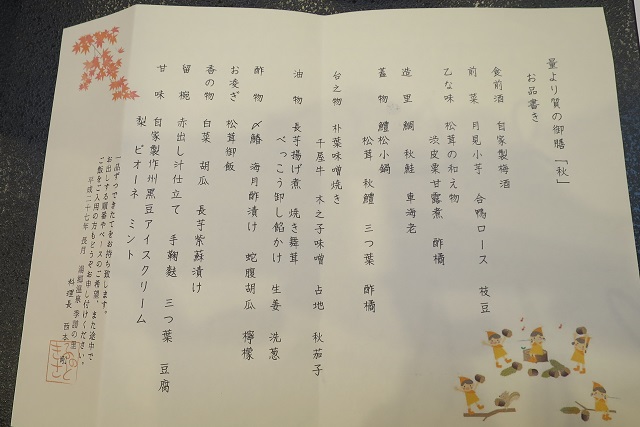 量より質の御膳「秋」
お品書き
食前酒 自家製梅酒
前菜 月見小芋 合鴨ロース 枝豆
乙な味 松茸の和え物
渋皮栗甘露煮 酢橘
造里 鯛 秋鮭 車海老
蓋物 鱧松小鍋
松茸 秋鱧 三つ葉 酢橘
台之物 朴葉味噌焼き
千屋牛 木之子味噌 占地 秋茄子
油物 長芋揚げ煮 焼き舞茸
べっこう卸し餡かけ 生姜 洗葱
酢物 〆鯵 海月酢漬け 蛇腹胡瓜 檸檬
お凌ぎ 松茸御飯
香の物 白菜 胡瓜 長芋紫蘇漬け
留椀 赤出し汁仕立て 手鞠麩 三つ葉 豆腐
甘味 自家製作州黒豆アイスクリーム
梨 ピオーネ ミント
一品ずつできたてをお持ち致します。
お出しする順番やペースのご希望、また途中で
ご飯をご入用の方もどうぞお申し付けください。
平成二十七年 長月 湯郷温泉 季譜の里
料理長